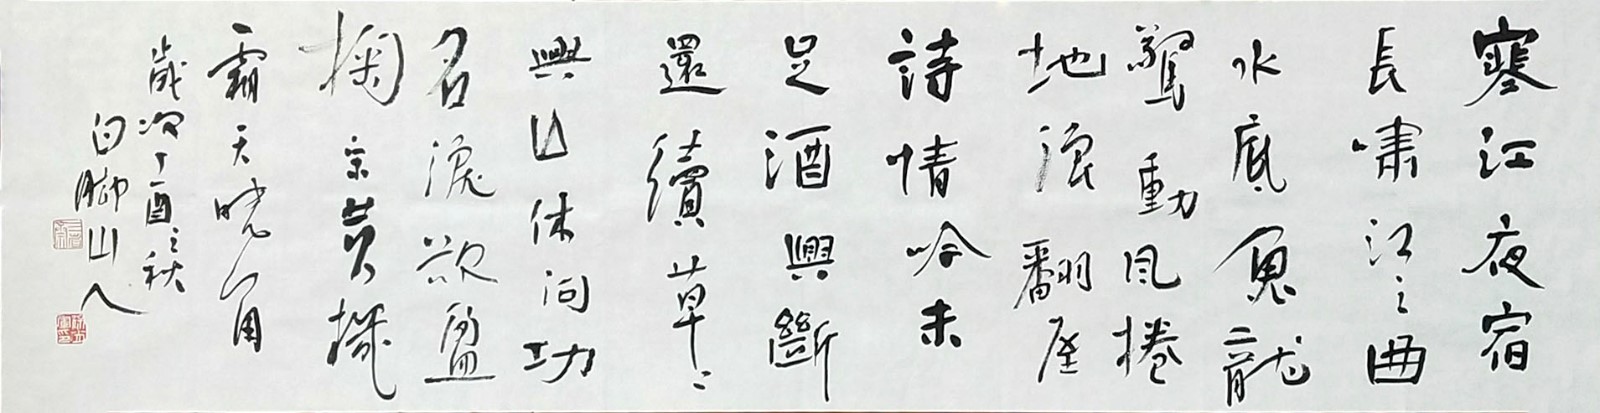 寒江夜宿
長嘯江之曲
水底魚龍
驚動風捲
地浪翻屋
詩情吟未
足酒興斷
還續草〻
興亡休问功
名淚欲盈
掬宋黄機
霜天曉角
歲次丁酉之秋
白脚山人